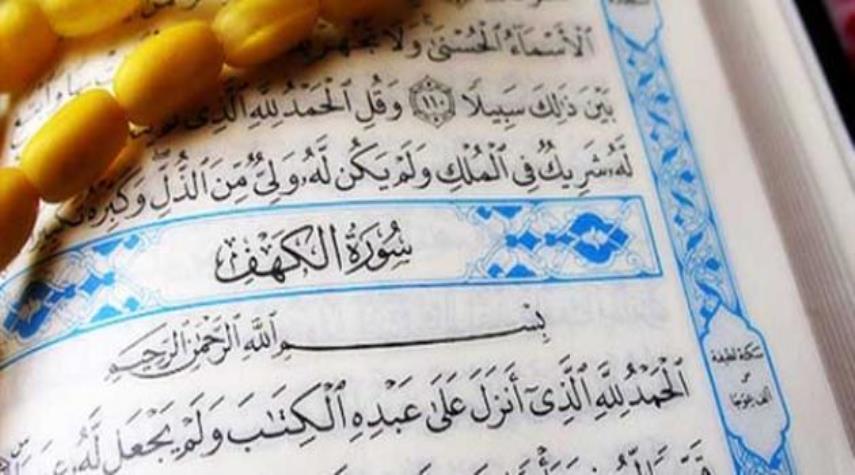 ٱلْأَسْمَآءُ ٱلْحُسْنَىٰ وَلَا تَجْهَرْ
بَيْنَ ذَٰلِكَ سَبِيلًا ١١٠ وَقُلِ ٱلْحَمْدُ لِلَّهِ ٱلَّذِى
لَّهُۥ شَرِيكٌ فِى ٱلْمُلْكِ وَلَمْ يَكُن لَّهُۥ وَلِىٌّ مِّنَ ٱلذُّلِّ وَكَبِّرْهُ تَكْبِيرًا
سُورَةُ الكَهْفِ
بِسْمِ ٱللَّهِ ٱلرَّحْمَٰنِ ٱلرَّحِيمِ
ٱلْحَمْدُ لِلَّهِ ٱلَّذِىٓ أَنزَلَ عَلَىٰ عَبْدِهِ ٱلْكِتَٰبَ وَلَمْ يَجْعَل لَّهُۥ
سكتة لطيفة
على
ألف عِوَجًا